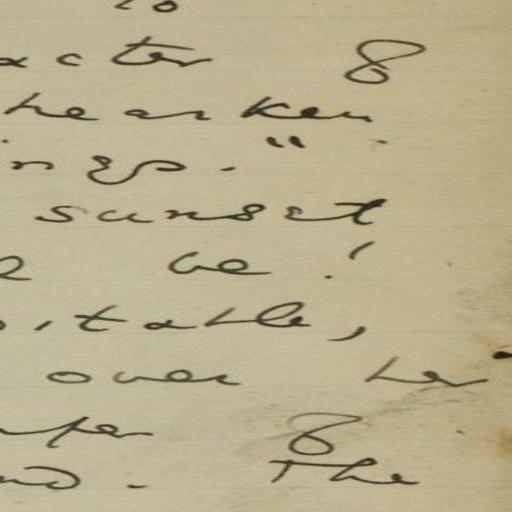 to
acter of
hearken
ings."
sunset
e be!
itable,
over her
of
and. The